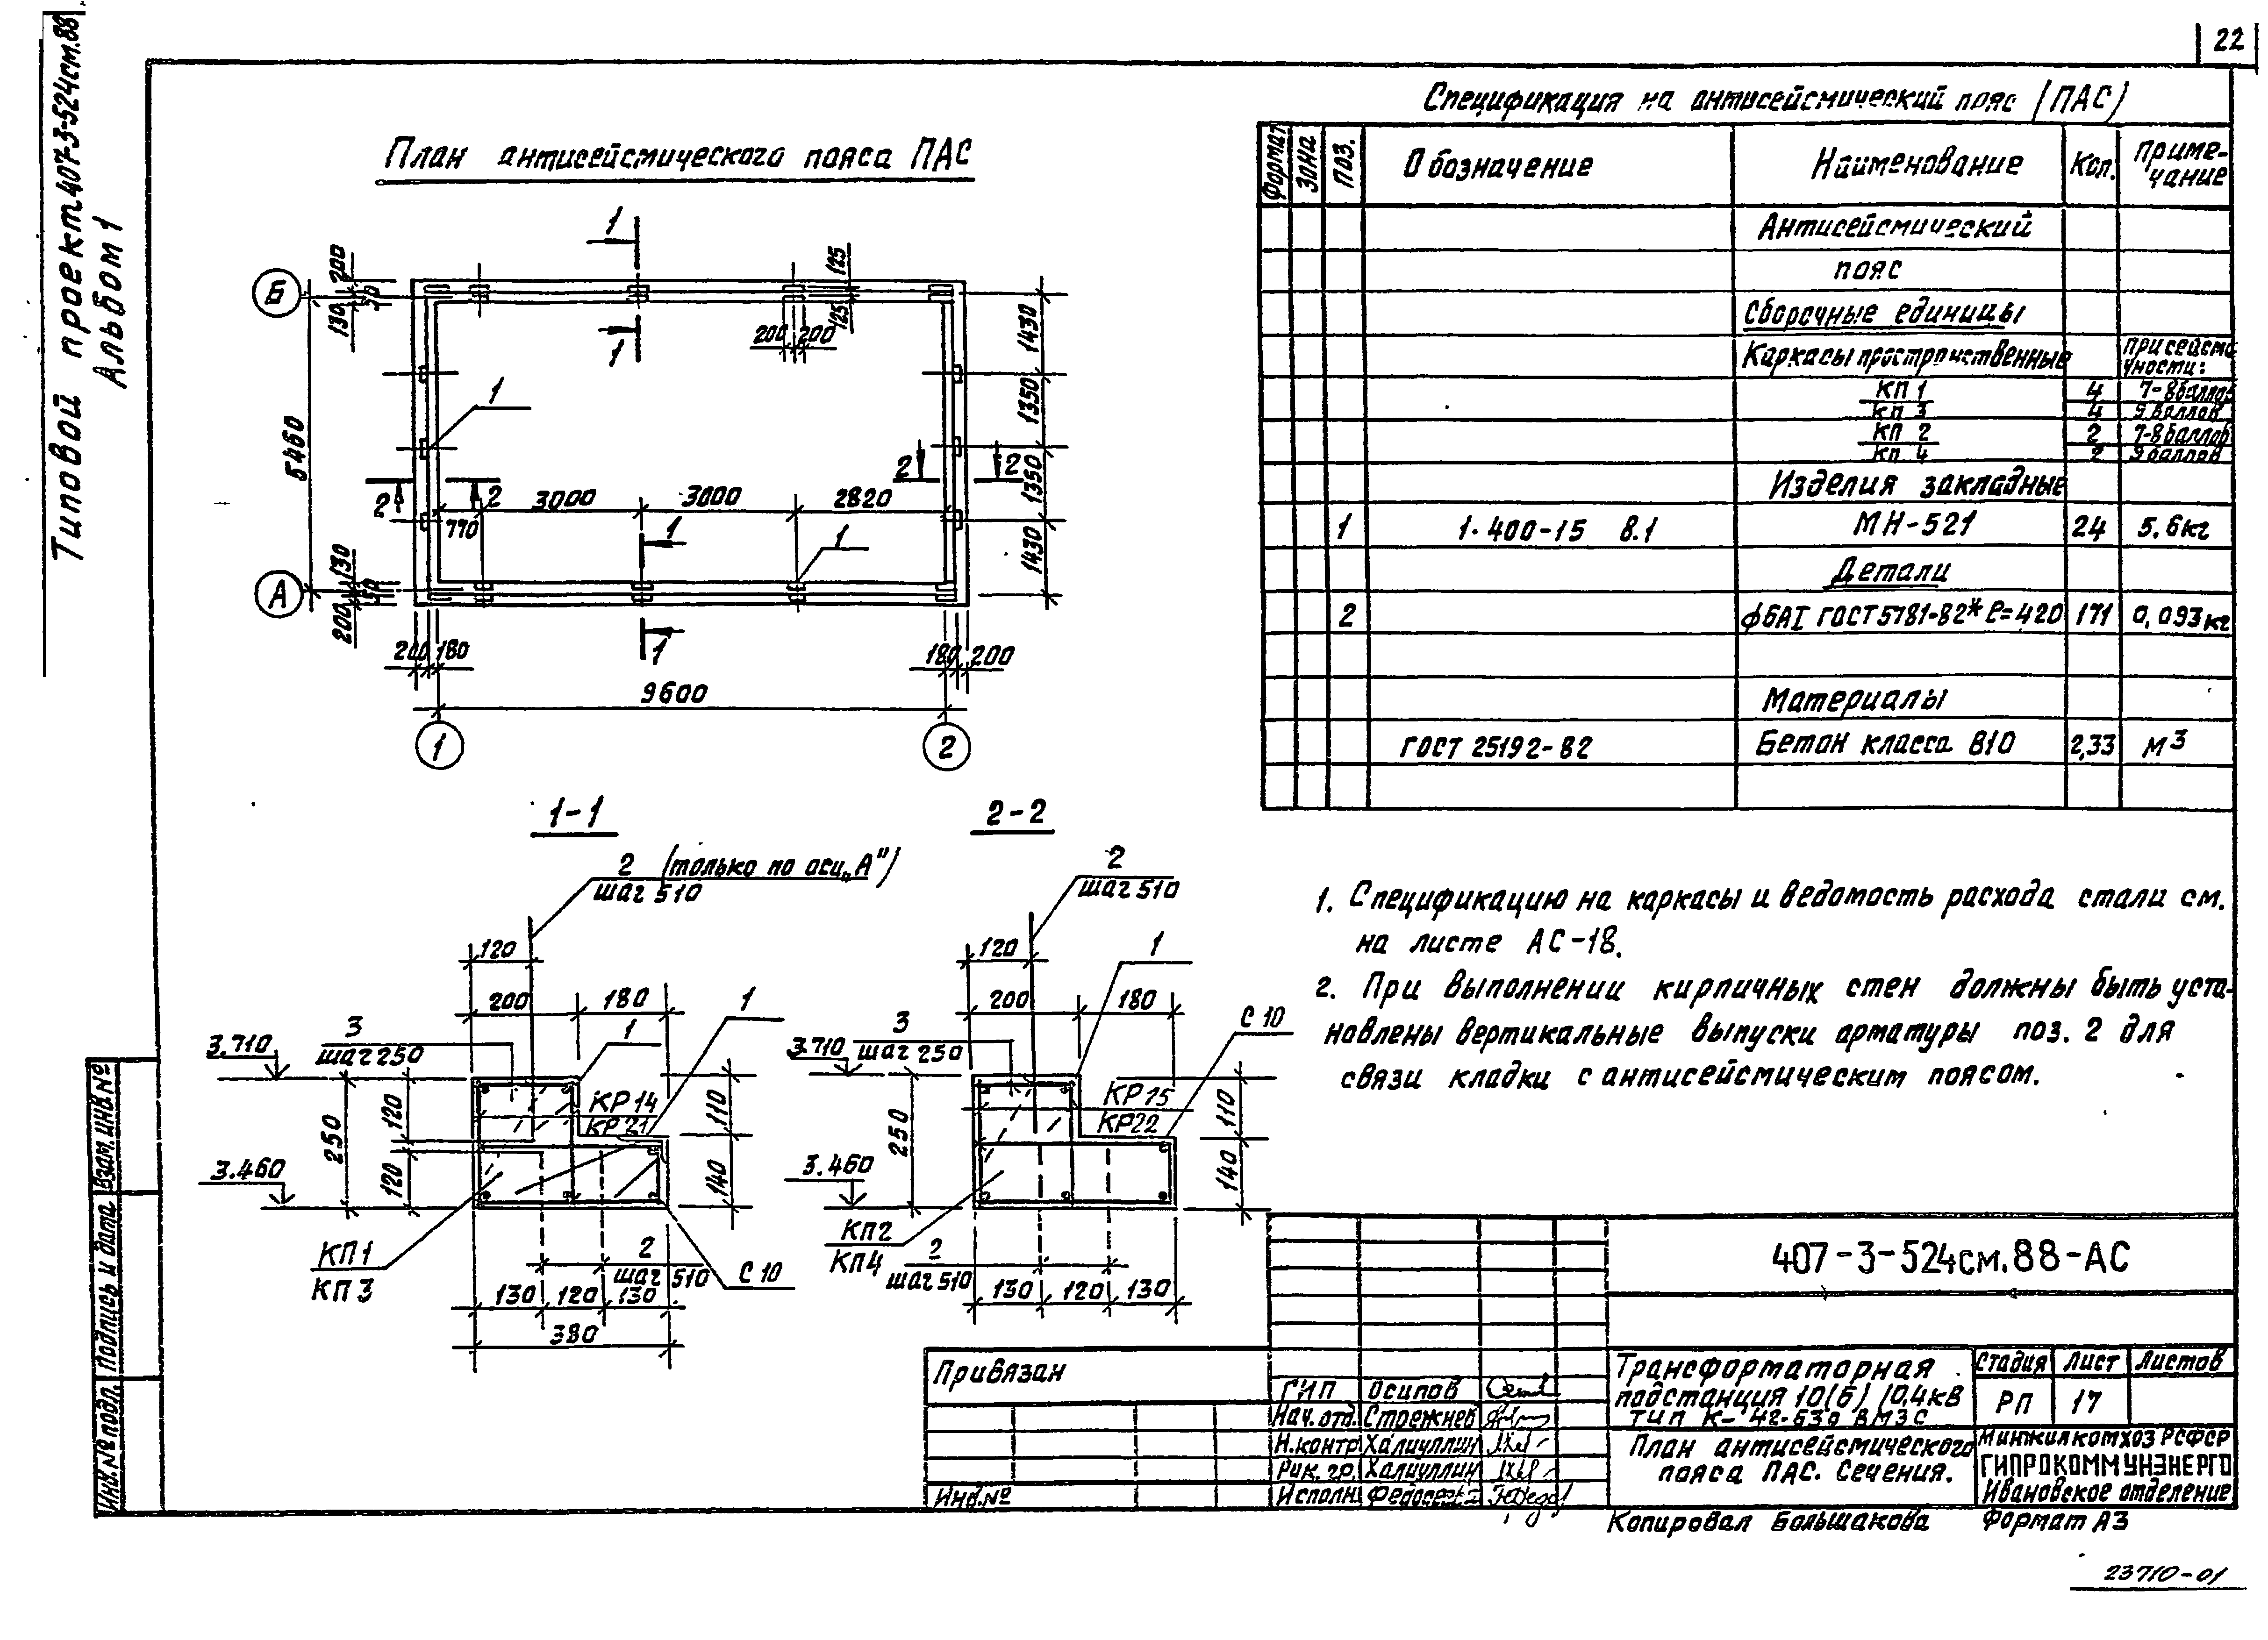 22
Типовой проект 407-3-524см.88
Альбом 1
План антисейсмического пояса ПАС
1
1
Б
200
50
130
125
125
200 200
1430
1350
1350
1430
5460
1
2 2
2 2
3000 3000 2820
770
1
1
1
А
130
50
200
200 180
180 200
9600
1 2
Спецификация на антисейсмический пояс (ПАС)
Формат Зона Поз. Обозначение Наименование Кол. Примечание
Антисейсмический
пояс
Сборочные единицы
Каркасы пространственные при сейсмичности:
КП 1 4 7-8 баллов
КП 3 4 9 баллов
КП 2 2 7-8 баллов
КП 4 2 9 баллов
Изделия закладные
1 1.400-15 В.1 МН-521 24 5.6кг
Детали
2 ф6АI ГОСТ 5781-82* ℓ=420 171 0,093кг
Материалы
ГОСТ 25192-82 Бетон класса В10 2,33 м3
1-1
2 (только по оси „А")
шаг 510
120
200 180
1
1
3
шаг 250
3.710
КР 14
КР 21
120
120
250
110
140
3.460
КП 1
КП 3
2
шаг 510
С 10
130 120 130
380
2-2
2
шаг 510
120
1
200 180
С 10
3
шаг 250
3.710
КР 15
КР 22
250
110
140
3.460
КП 2
КП 4
2
шаг 510
130 120 130
1. Спецификацию на каркасы и ведомость расхода стали см.
на листе АС-18.
2. При выполнении кирпичных стен должны быть уста-
новлены вертикальные выпуски арматуры поз. 2 для
связи кладки с антисейсмическим поясом.
Взам. инв. №
Подпись и дата
Инв. № подл.
407-3-524см.88-АС
Привязан
Инв. №
ГИП Осипов
Нач. отд. Стрежнев
Н.контр Халиуллин
Рук. гр. Халиуллин
Исполн.
Трансформаторная
подстанция 10(6)/0,4кв
тип К-42-630 ВМ3С
План антисейсмического
пояса ПАС. Сечения.
Стадия Лист Листов
РП 17
Минжилкомхоз РСФСР
ГИПРОКОММУНЭНЕРГО
Ивановское отделение
Копировал Большакова Формат А3
23710-01